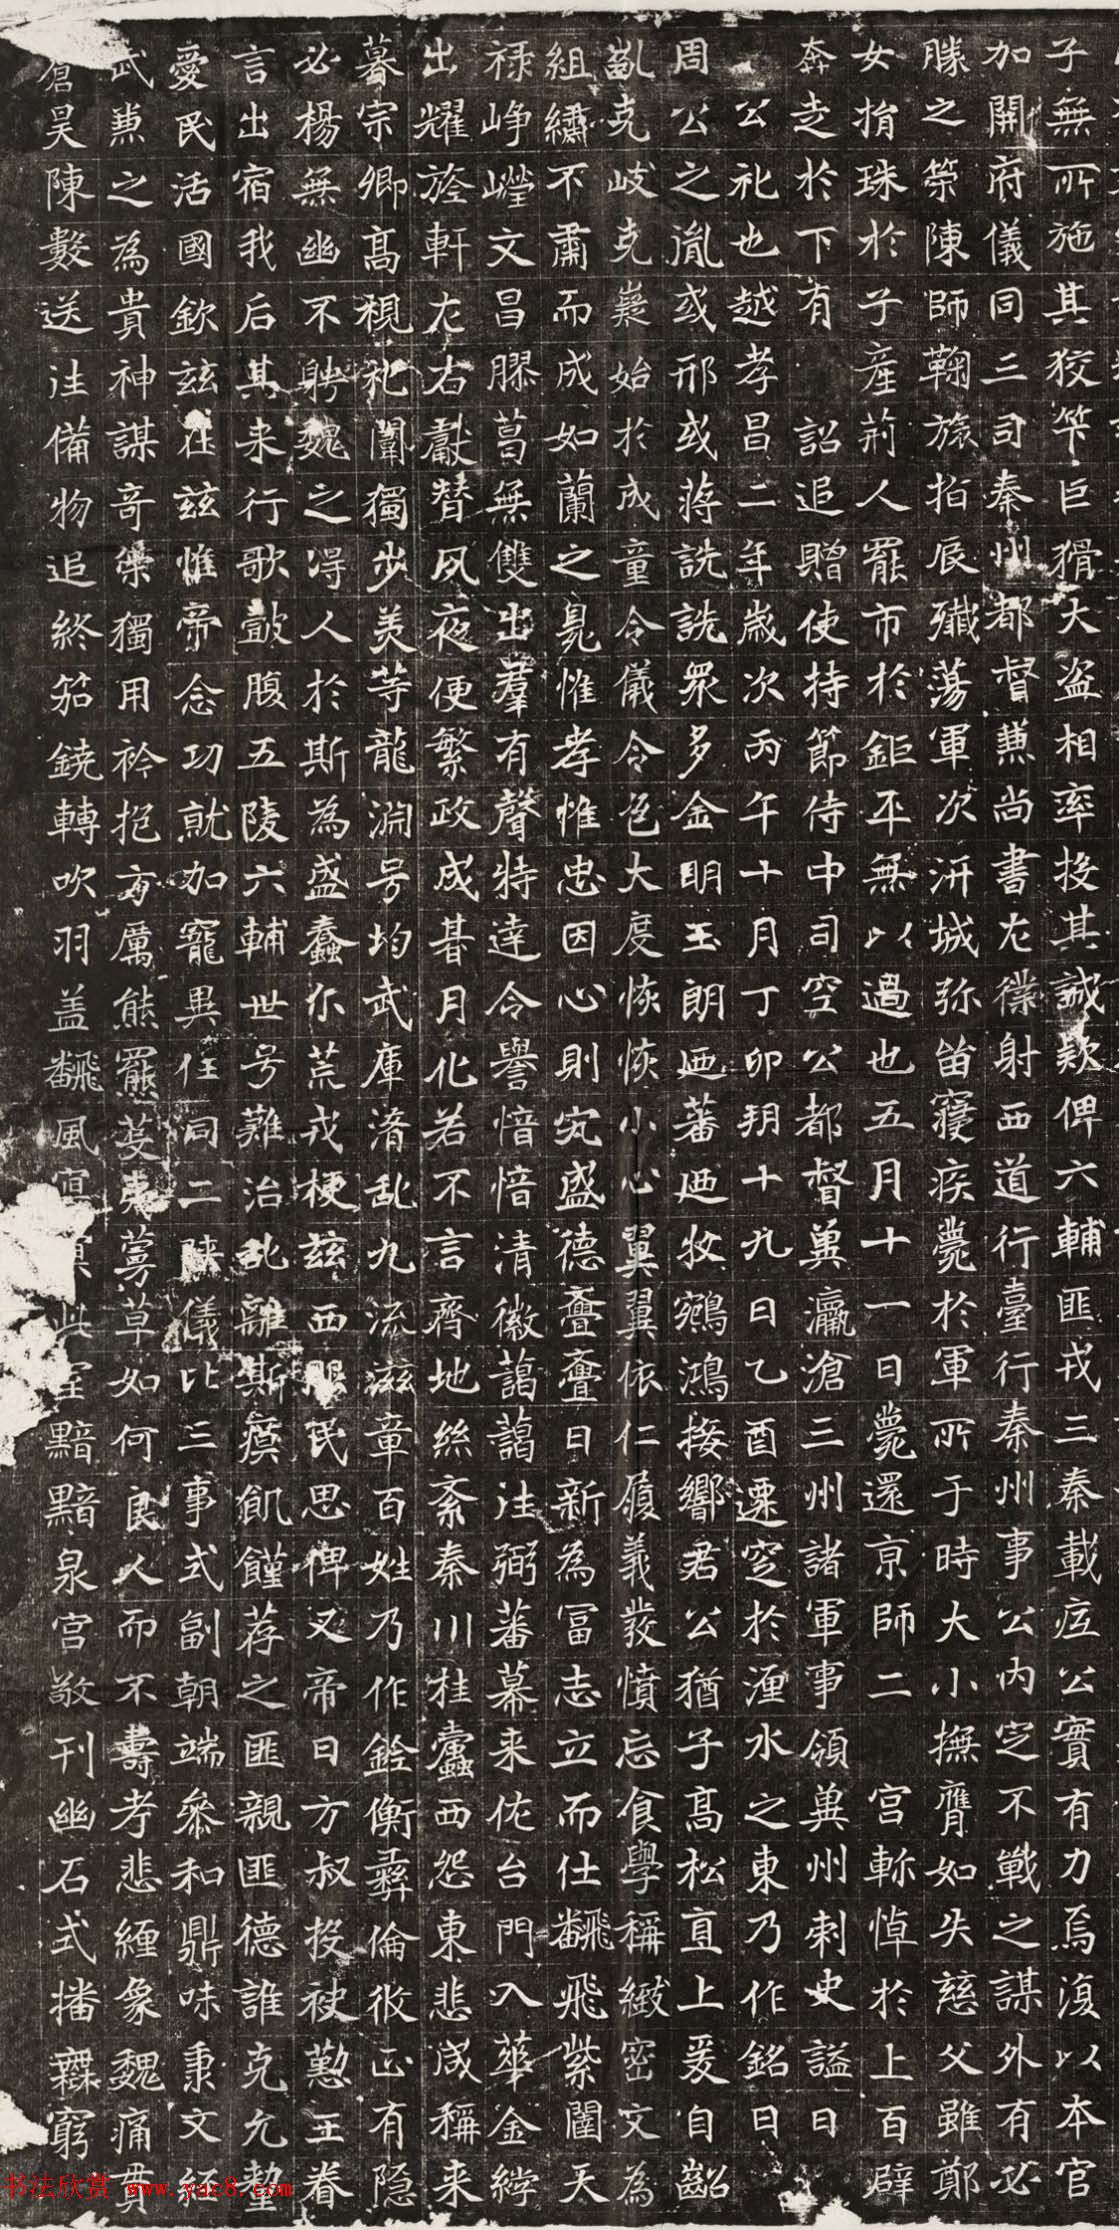 子無所施其狡筭巨猾大盜相率投其誠欵俾六輔匪戎三秦載㽵公實有力焉復以本官
加開府儀同三司秦州都督兼尚書左僕射西道行臺行秦州事公內定不戰之謀外有必
勝之策陳師鞠旅指辰殲蕩軍次汧城弥留寢疾薨於軍所于時大小撫膺如失慈父雖鄭
女捐珠於子產荊人罷市於鉅平無以過也五月十一日䘮還京師二宮軫悼於上百辟
奔走於下有詔追贈使持節侍中司空公都督冀瀛滄三州諸軍事領冀州刺史謚曰
公礼也越孝昌二年歲次丙午十月丁卯朔十九日乙酉遷窆於湹水之東乃作銘曰
周公之胤或邢或蔣詵詵眾多金明玉朗迺蕃迺牧鵷鴻接響君公猶子高松直上爰自齠
亂克岐克嶷始於成童令儀令色大度恢恢小心翼翼依仁履義發憤忘食學稱緻密文為
組繡不肅而成如蘭之㫶惟孝惟忠因心則宄盛德亹亹日新為冨志立而仕飜飛紫闥天
祿崢嶸文昌膠葛無雙出羣有聲特達令譽愔愔清徽藹藹注弼蕃幕来佐台門入華金綍
出耀旍軒左右獻替夙夜便繁政成朞月化若不言齊地絲紊秦川桂蠹西怨東悲咸稱来
暮宗卿高視礼闈獨步美等龍淵号均武庫淆乱九流滋章百姓乃作銓衡彝倫攸正有隐
必楊無幽不聘魏之得人於斯為盛蠢尒荒戎梗茲西服民思俾乂帝曰方叔投袂懃王眷
言出宿我后其来行歌鼓腹五陵六輔世号難治乱離斯瘼飢饉荐之匪親匪德誰克允釐
愛民活國欽茲在茲惟帝念功就加寵異任同二陝儀比三事式副朝端叅和鼎味秉文經
武兼之為貴神謀奇筞獨用衿抱方厲熊羆芟夷蔓草如何良人而不壽考悲纏象魏痛貫
倉昊陳數送往備物追終笳鐃轉吹羽盖飜風黯黯泉宮敬刊幽石式播無窮
书法欣赏 www.yac8.com